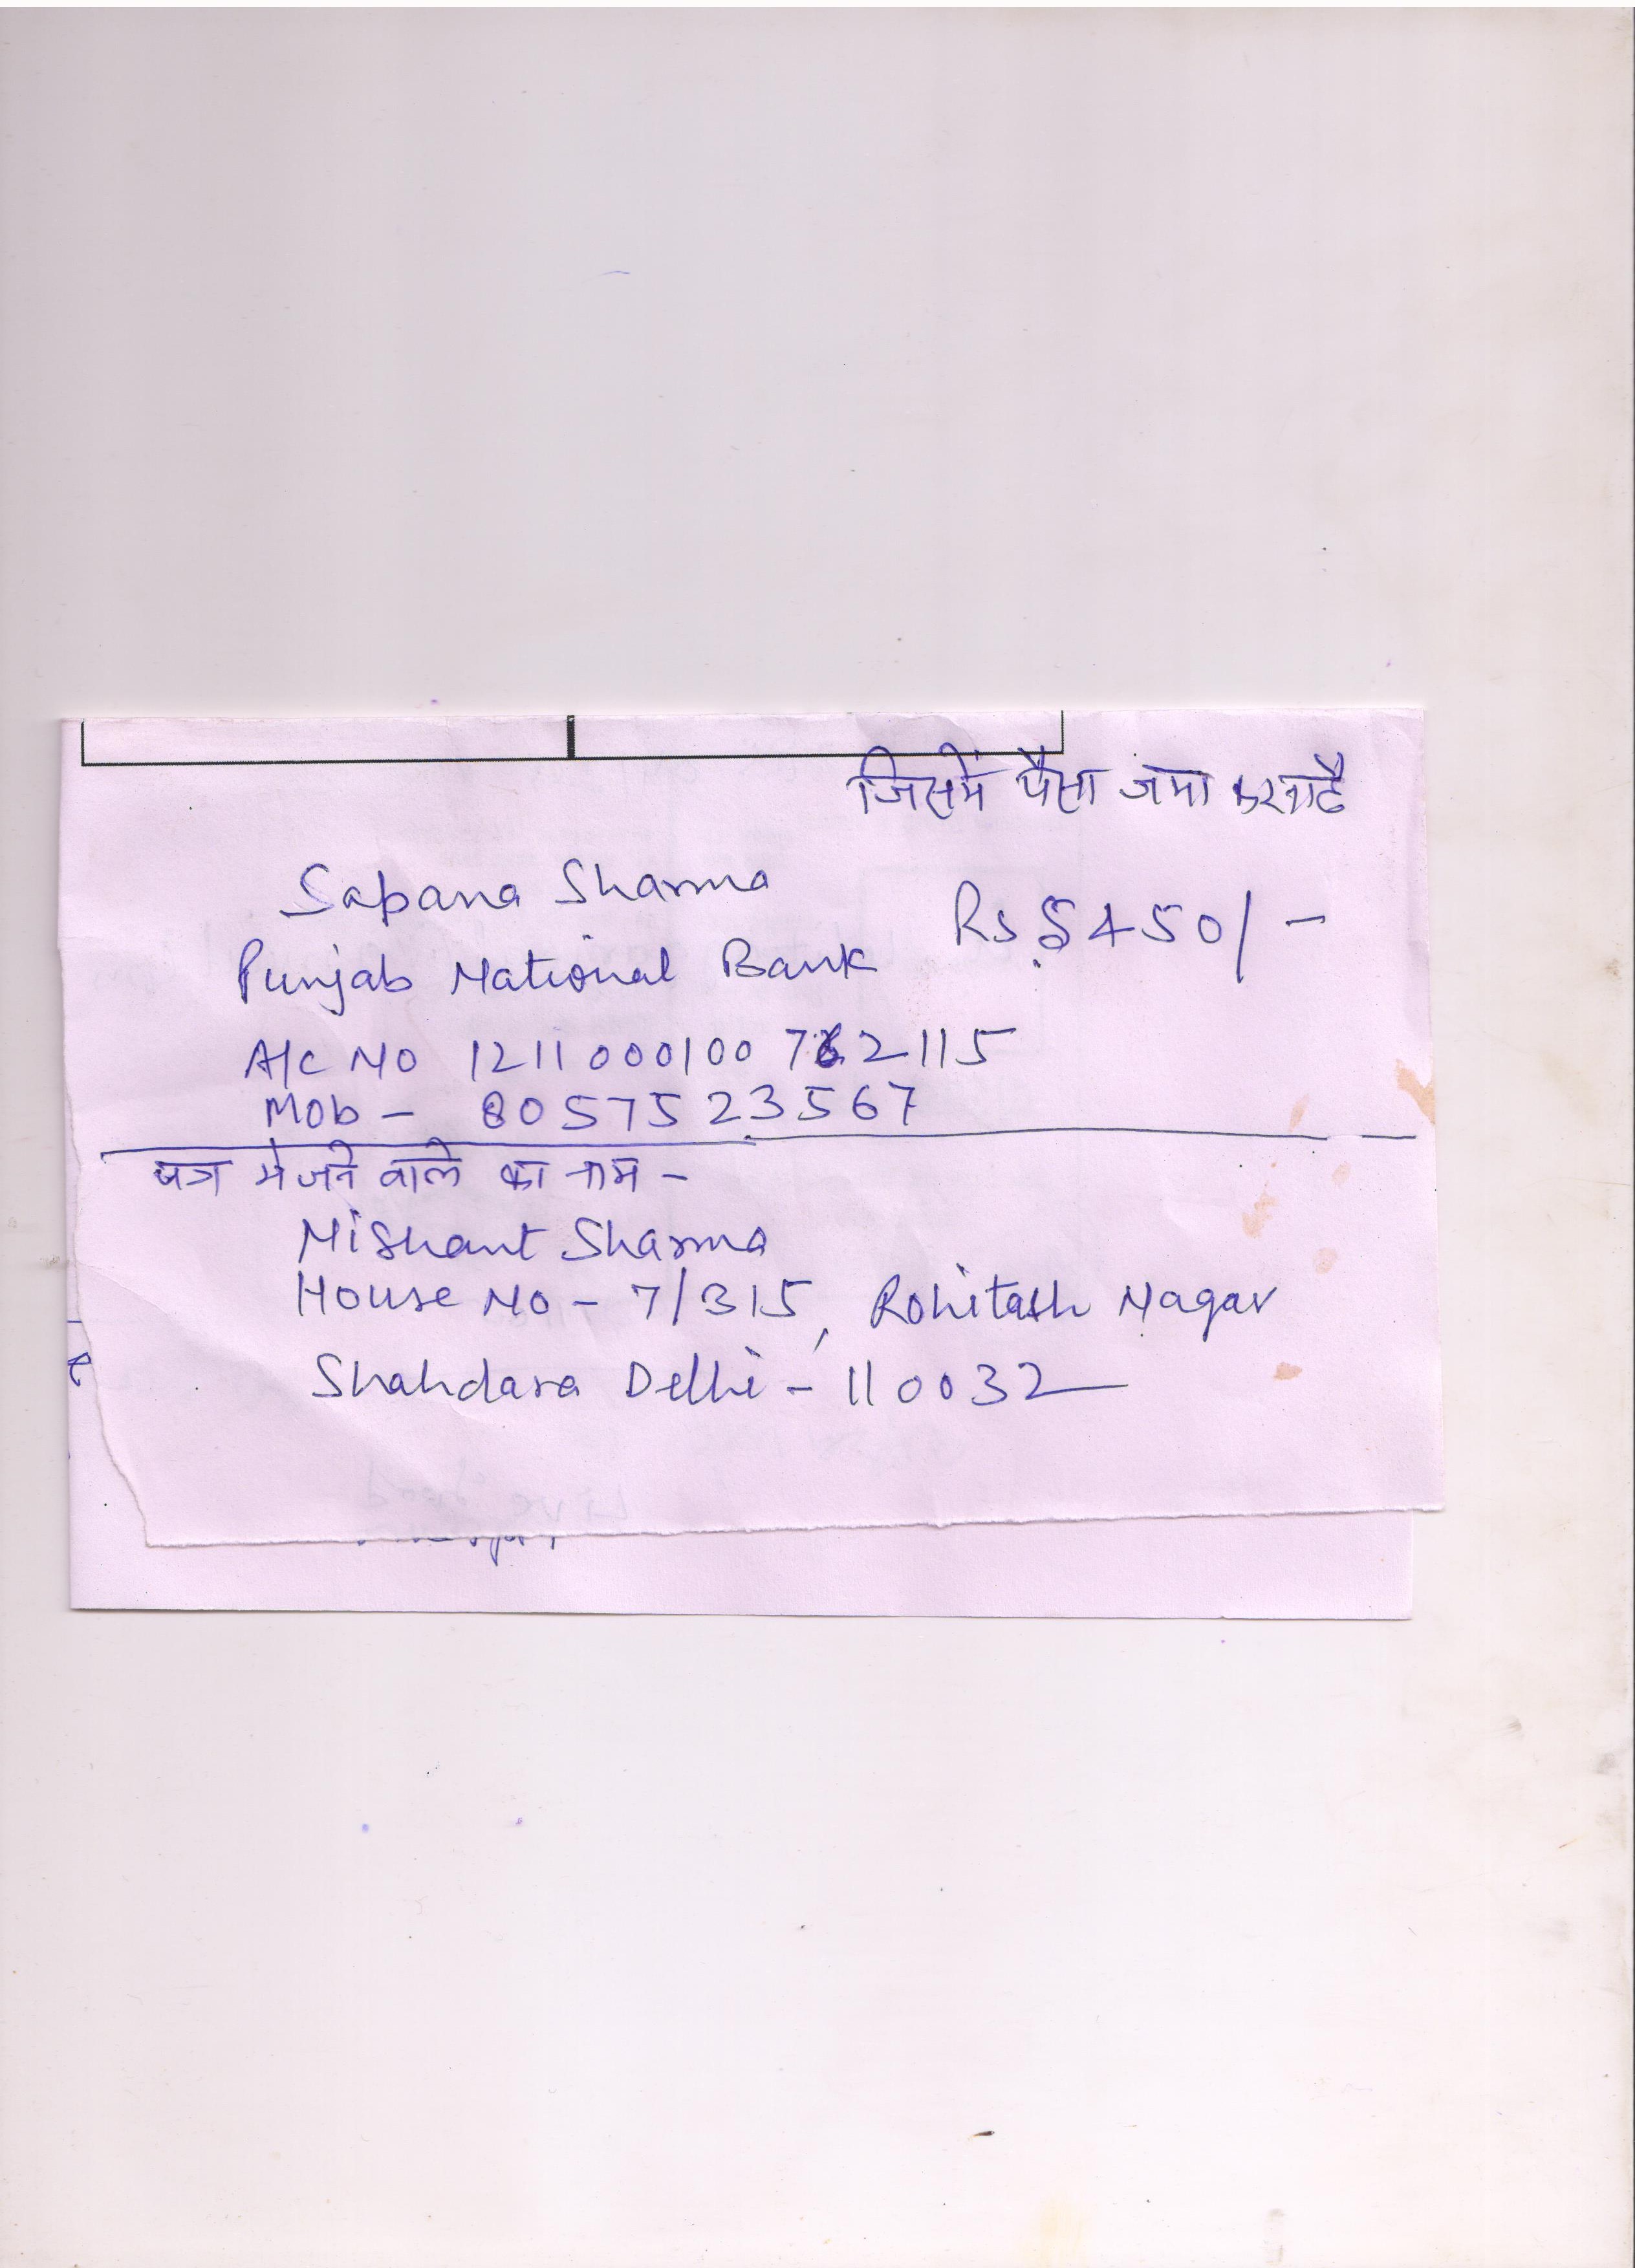 जिसमें पैसा जमा करना है
Sapana Sharma
Rs 5450/-
Punjab National Bank
A/C No 1211000100762115
Mob - 8057523567
पत्र भेजने वाले का नाम -
Nishant Sharma
House No - 7/315, Rohitash Nagar
Shahdara Delhi - 110032